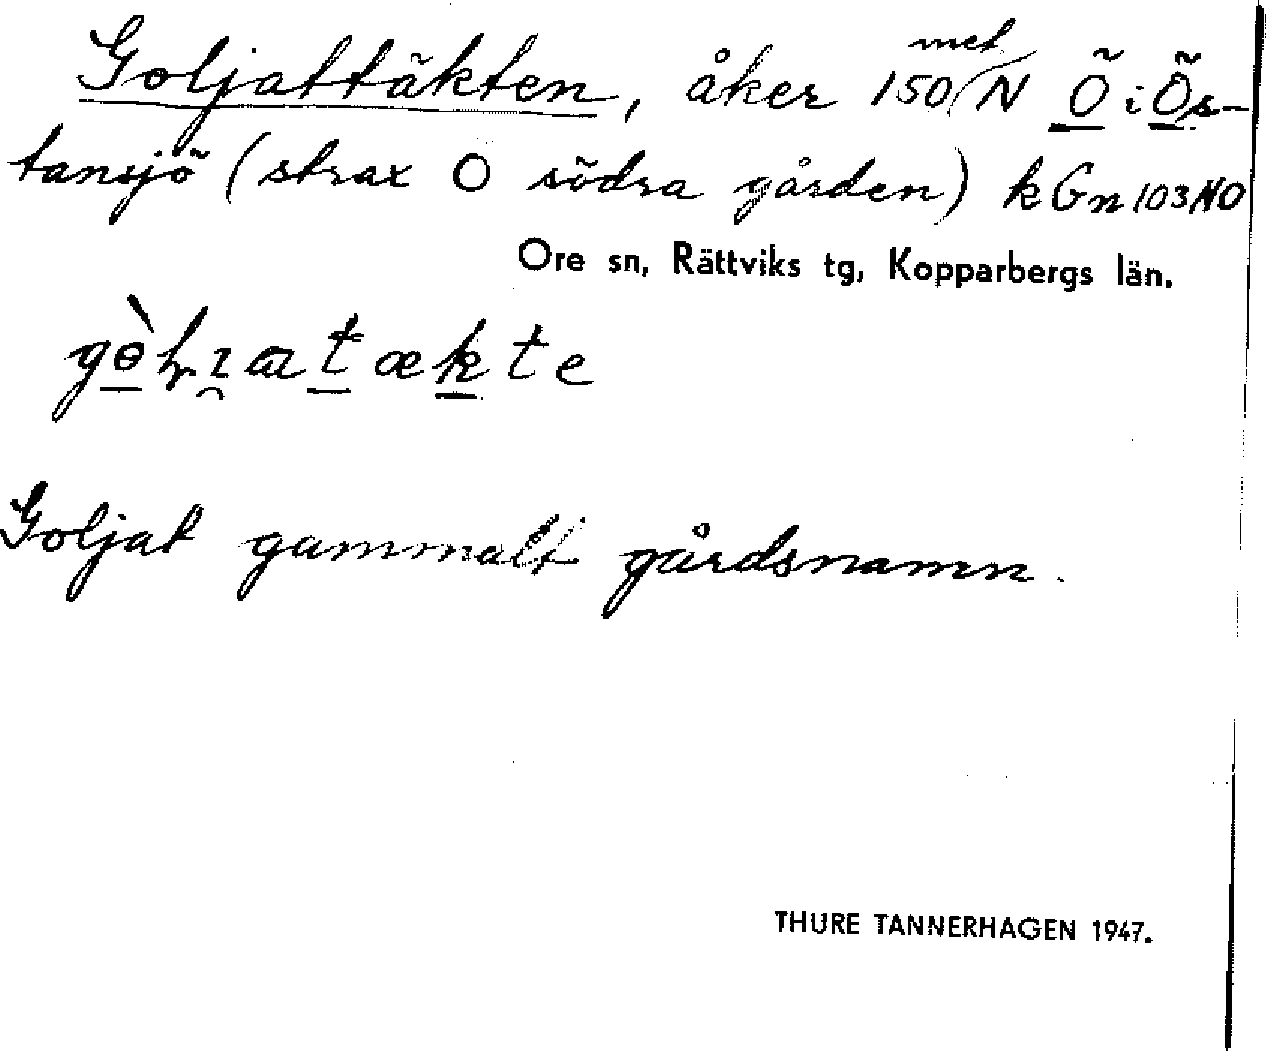 Goljattäkten, åker 150 met N Ö i Ös-
tansjö (strax O södra gården) k Gn 103 NO
Ore sn, Rättviks tg, Kopparbergs län.
Goljat gammalt gårdsnamn.
THURE TANNERHAGEN 1947.